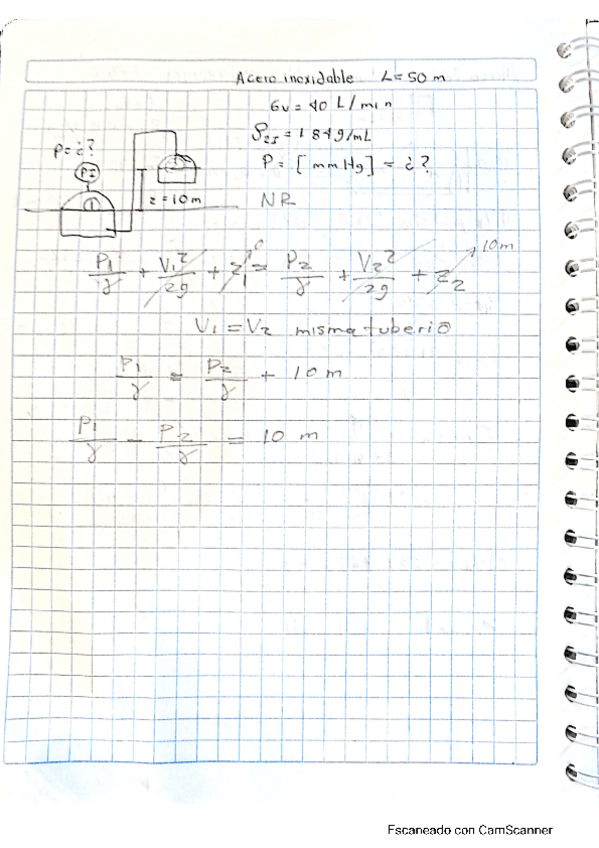 Acero inoxidable L= 50 m
Gv = 40 L/min
ρ25 = 1.84g/mL
P = [mmHg] = ¿?
NR
P=¿?
PI
1
z=10m
P1/γ + V1²/2g + z1 0 = P2/γ + V2²/2g + z2 10m
V1 = V2 misma tuberia
P1/γ = P2/γ + 10 m
P1/γ - P2/γ = 10 m
Escaneado con CamScanner